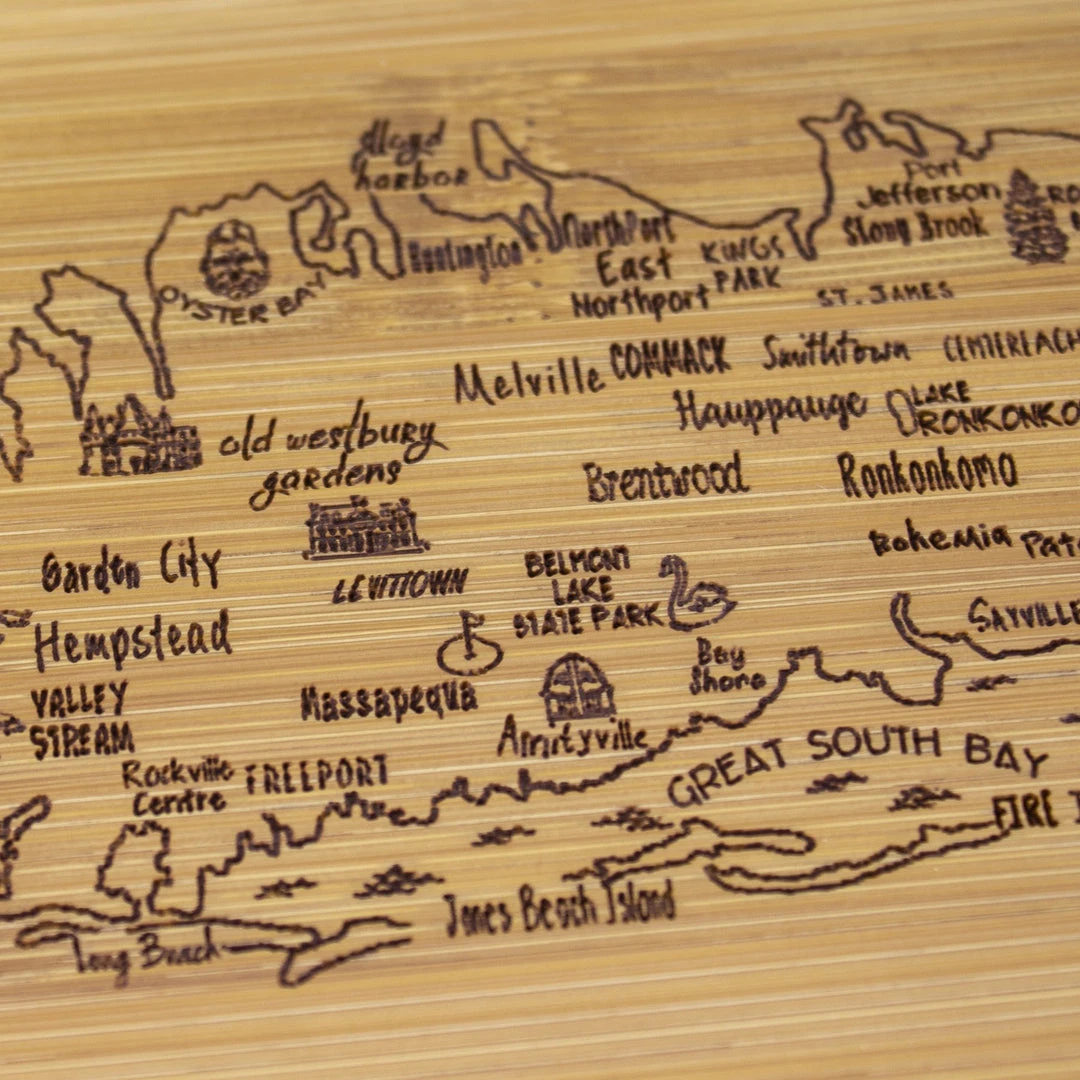 lloyd
harbor
Port
Jefferson
Stony Brook
RO
Huntington
NorthPort
East
Northport
KINGS
PARK
OYSTER BAY
ST. JAMES
Melville
COMMACK
Smithtown
CENTEREACH
Hauppauge
LAKE
RONKONKO
old westbury
gardens
Brentwood
Ronkonkomo
Garden City
LEVITTOWN
BELMONT
LAKE
STATE PARK
Bohemia
Patc
Hempstead
SAYVILLE
Bay
Shore
VALLEY
STREAM
Massapequa
Amityville
Rockville
Centre
FREEPORT
GREAT SOUTH BAY
FIRE I
Jones Beach Island
Long Beach